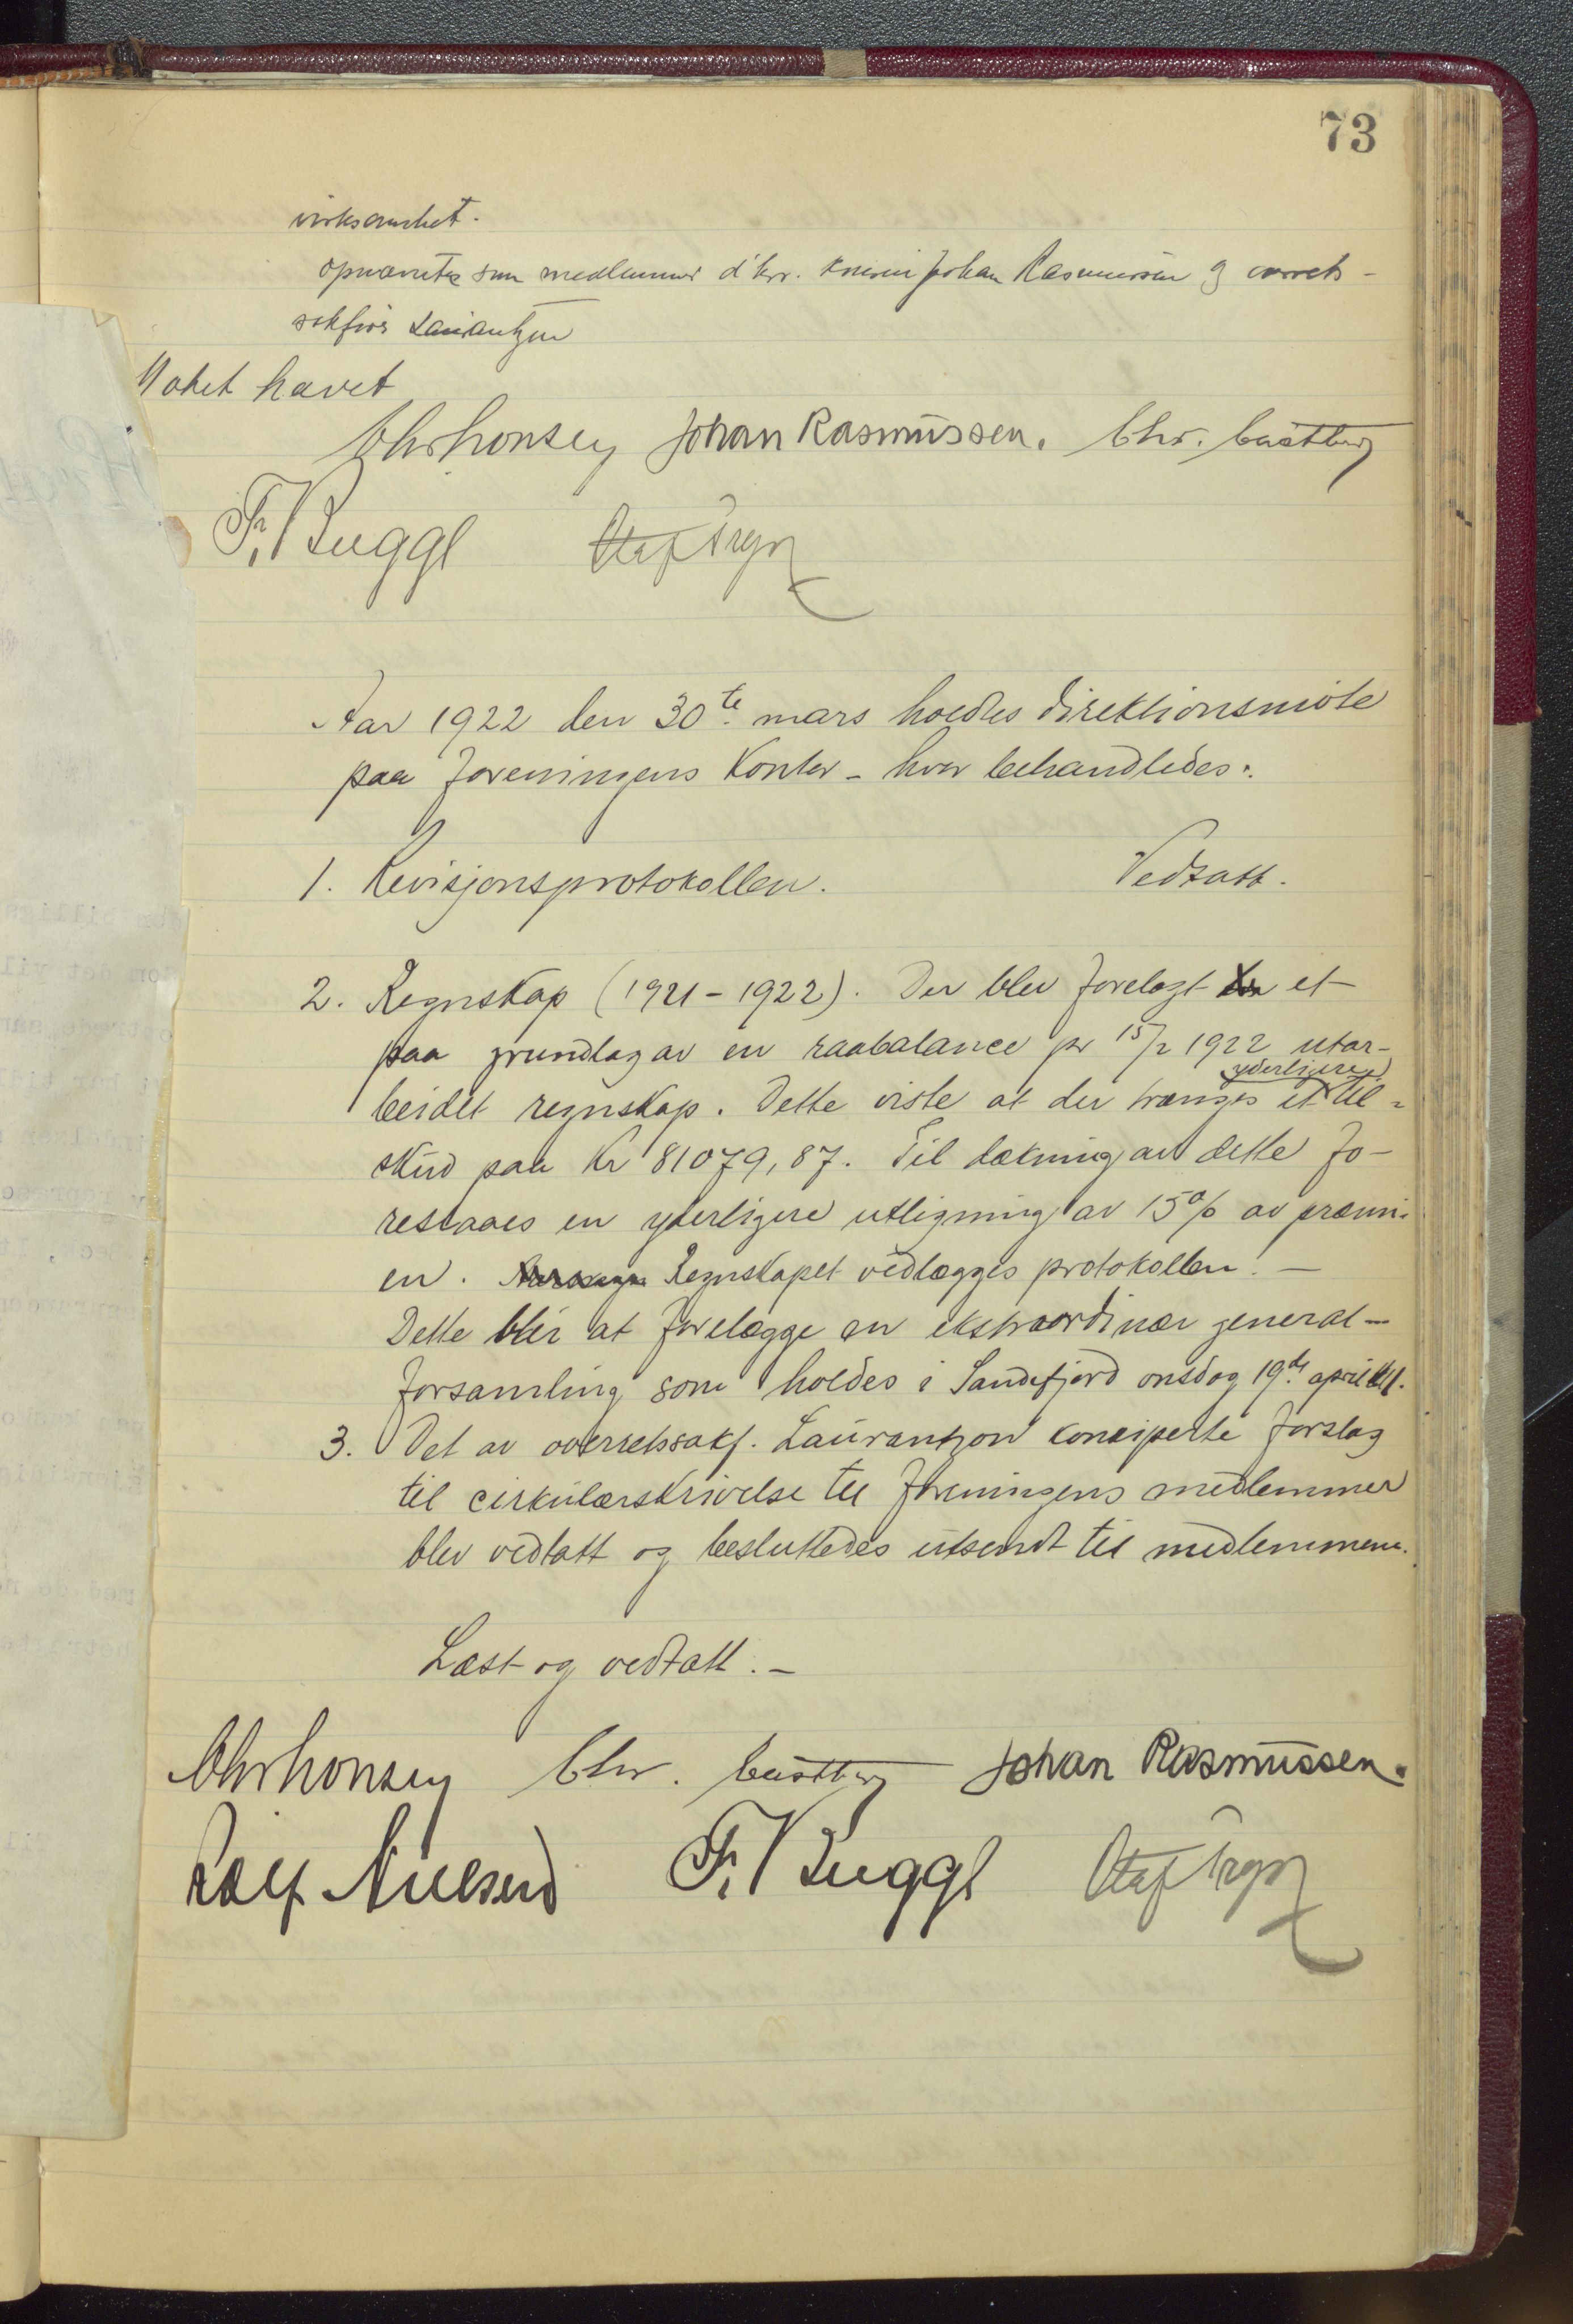 73
virksomhet.
opnævntes som medlemmer d'hrr. Johan Rasmussen og overrets-
sakfører
Møtet hævet
Johan Rasmussen. Chr.
F. Bugge Olaf
Aar 1922 den 30te mars holdtes direktionsmöte
paa foreningens Kontor - hvor behandledes:
1. Revisjonsprotokollen. Vedtatt.
2. Regnskap (1921-1922). Der blev forelagt et
paa grundlag av en raabalance pr 15/2 1922 utar-
yderligere
beidet regnskap. Dette viste at der trænges et til-
skud paa Kr 81079,87. Til dækning av dette fo-
reslaaes en yderligere utligning av 15% av præmi-
en. Regnskapet vedlægges protokollen. -
Dette blir at forelægge en ekstraordinær general-
forsamling som holdes i Sandefjord onsdag 19de april
3. Det av overretssakf. Laurantzon konsiperte forslag
til cirkulærskrivelse til foreningens medlemmer
blev vedtatt og besluttedes utsendt til medlemmene.
Læst og vedtatt. -
Chr. Johan Rasmussen.
Rolf Nielsen F. Bugge Olaf